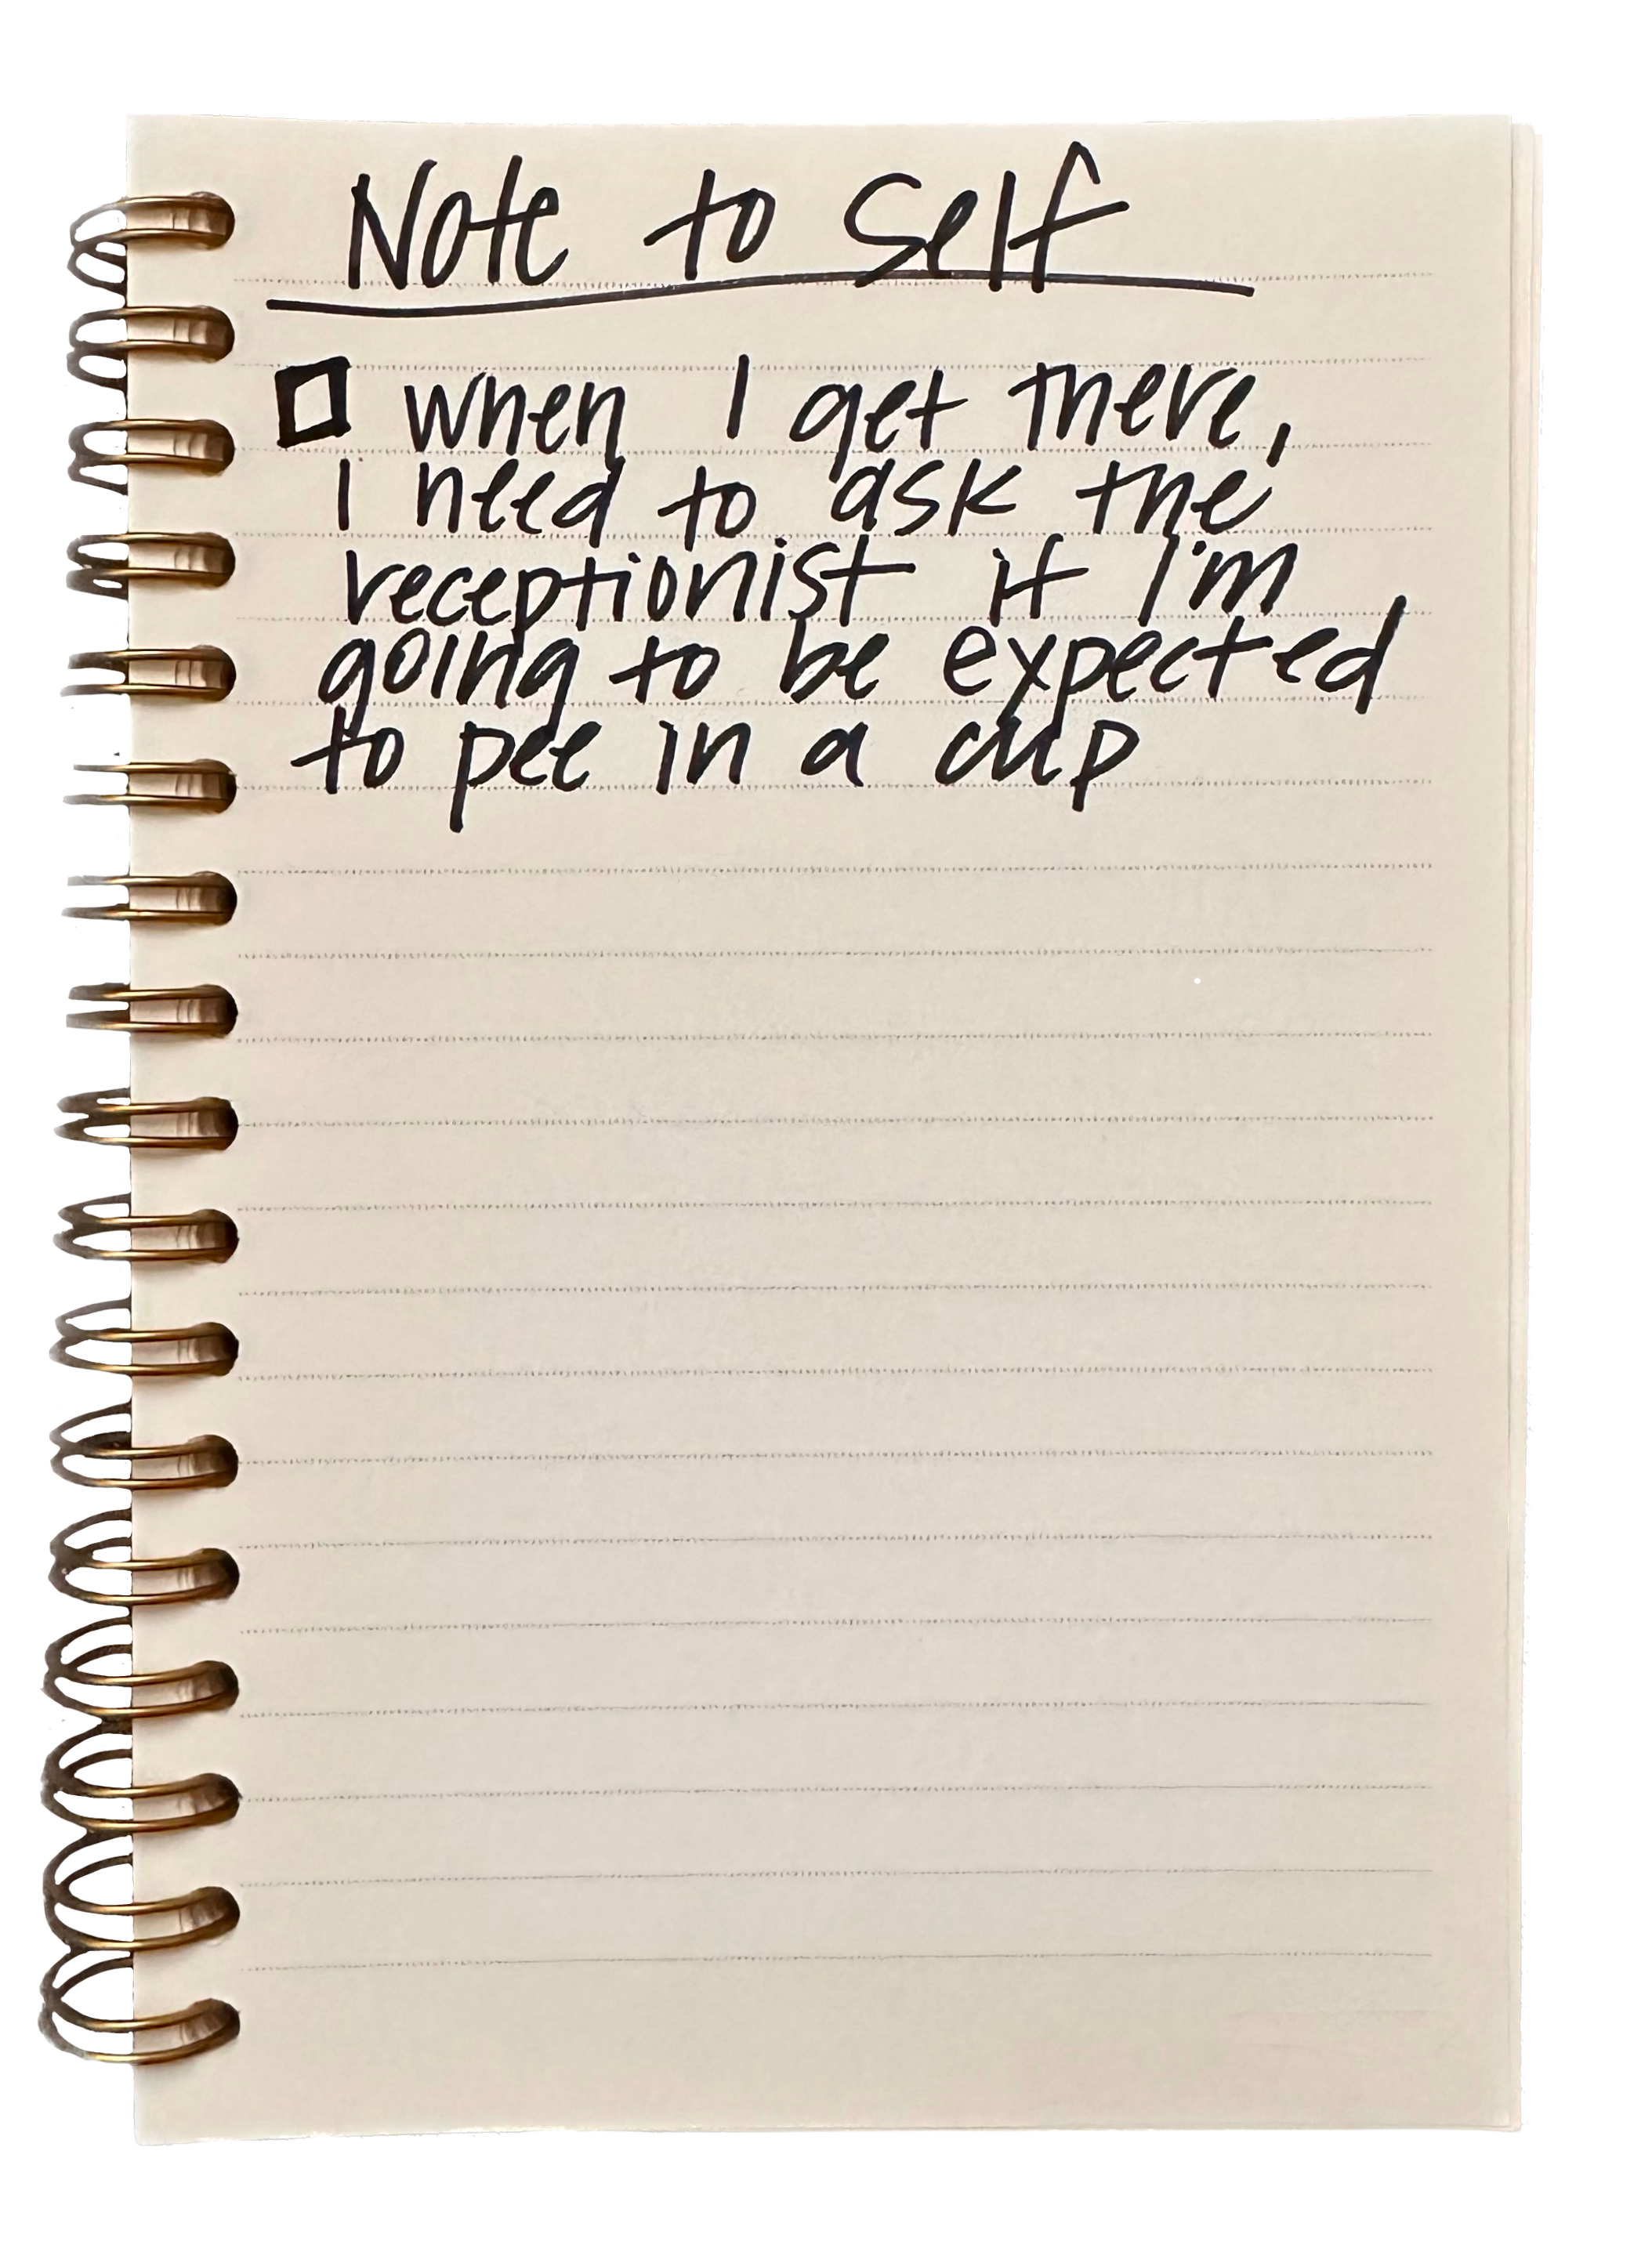 Note to Self
☐ when I get there,
I need to ask the
receptionist if I'm
going to be expected
to pee in a cup